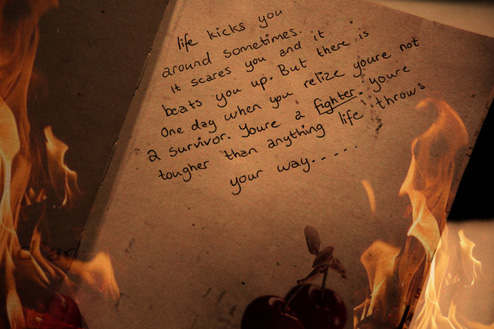 life kicks you
around sometimes.
It scares you and it
beats you up. But there is
One day when you relize youre not
a survivor. Youre a fighter. youre
tougher than anything life throws
your way.....